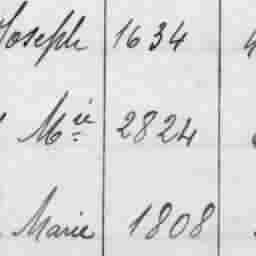 Joseph 1634
Mie 2824
Marie 1808